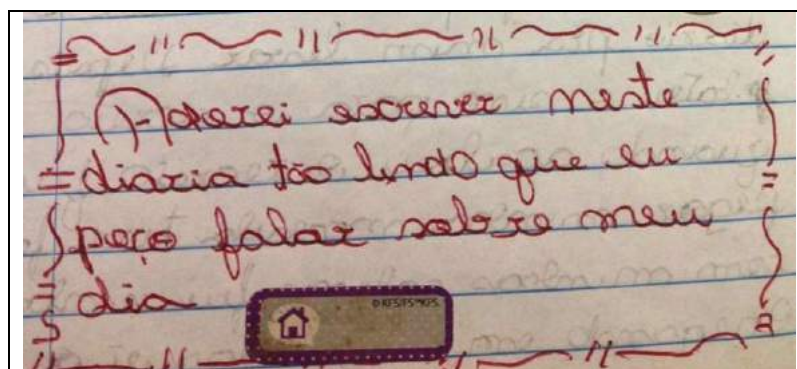 Adorei escrever neste
diaria tão lindo que eu
peço falar sobre meu
dia